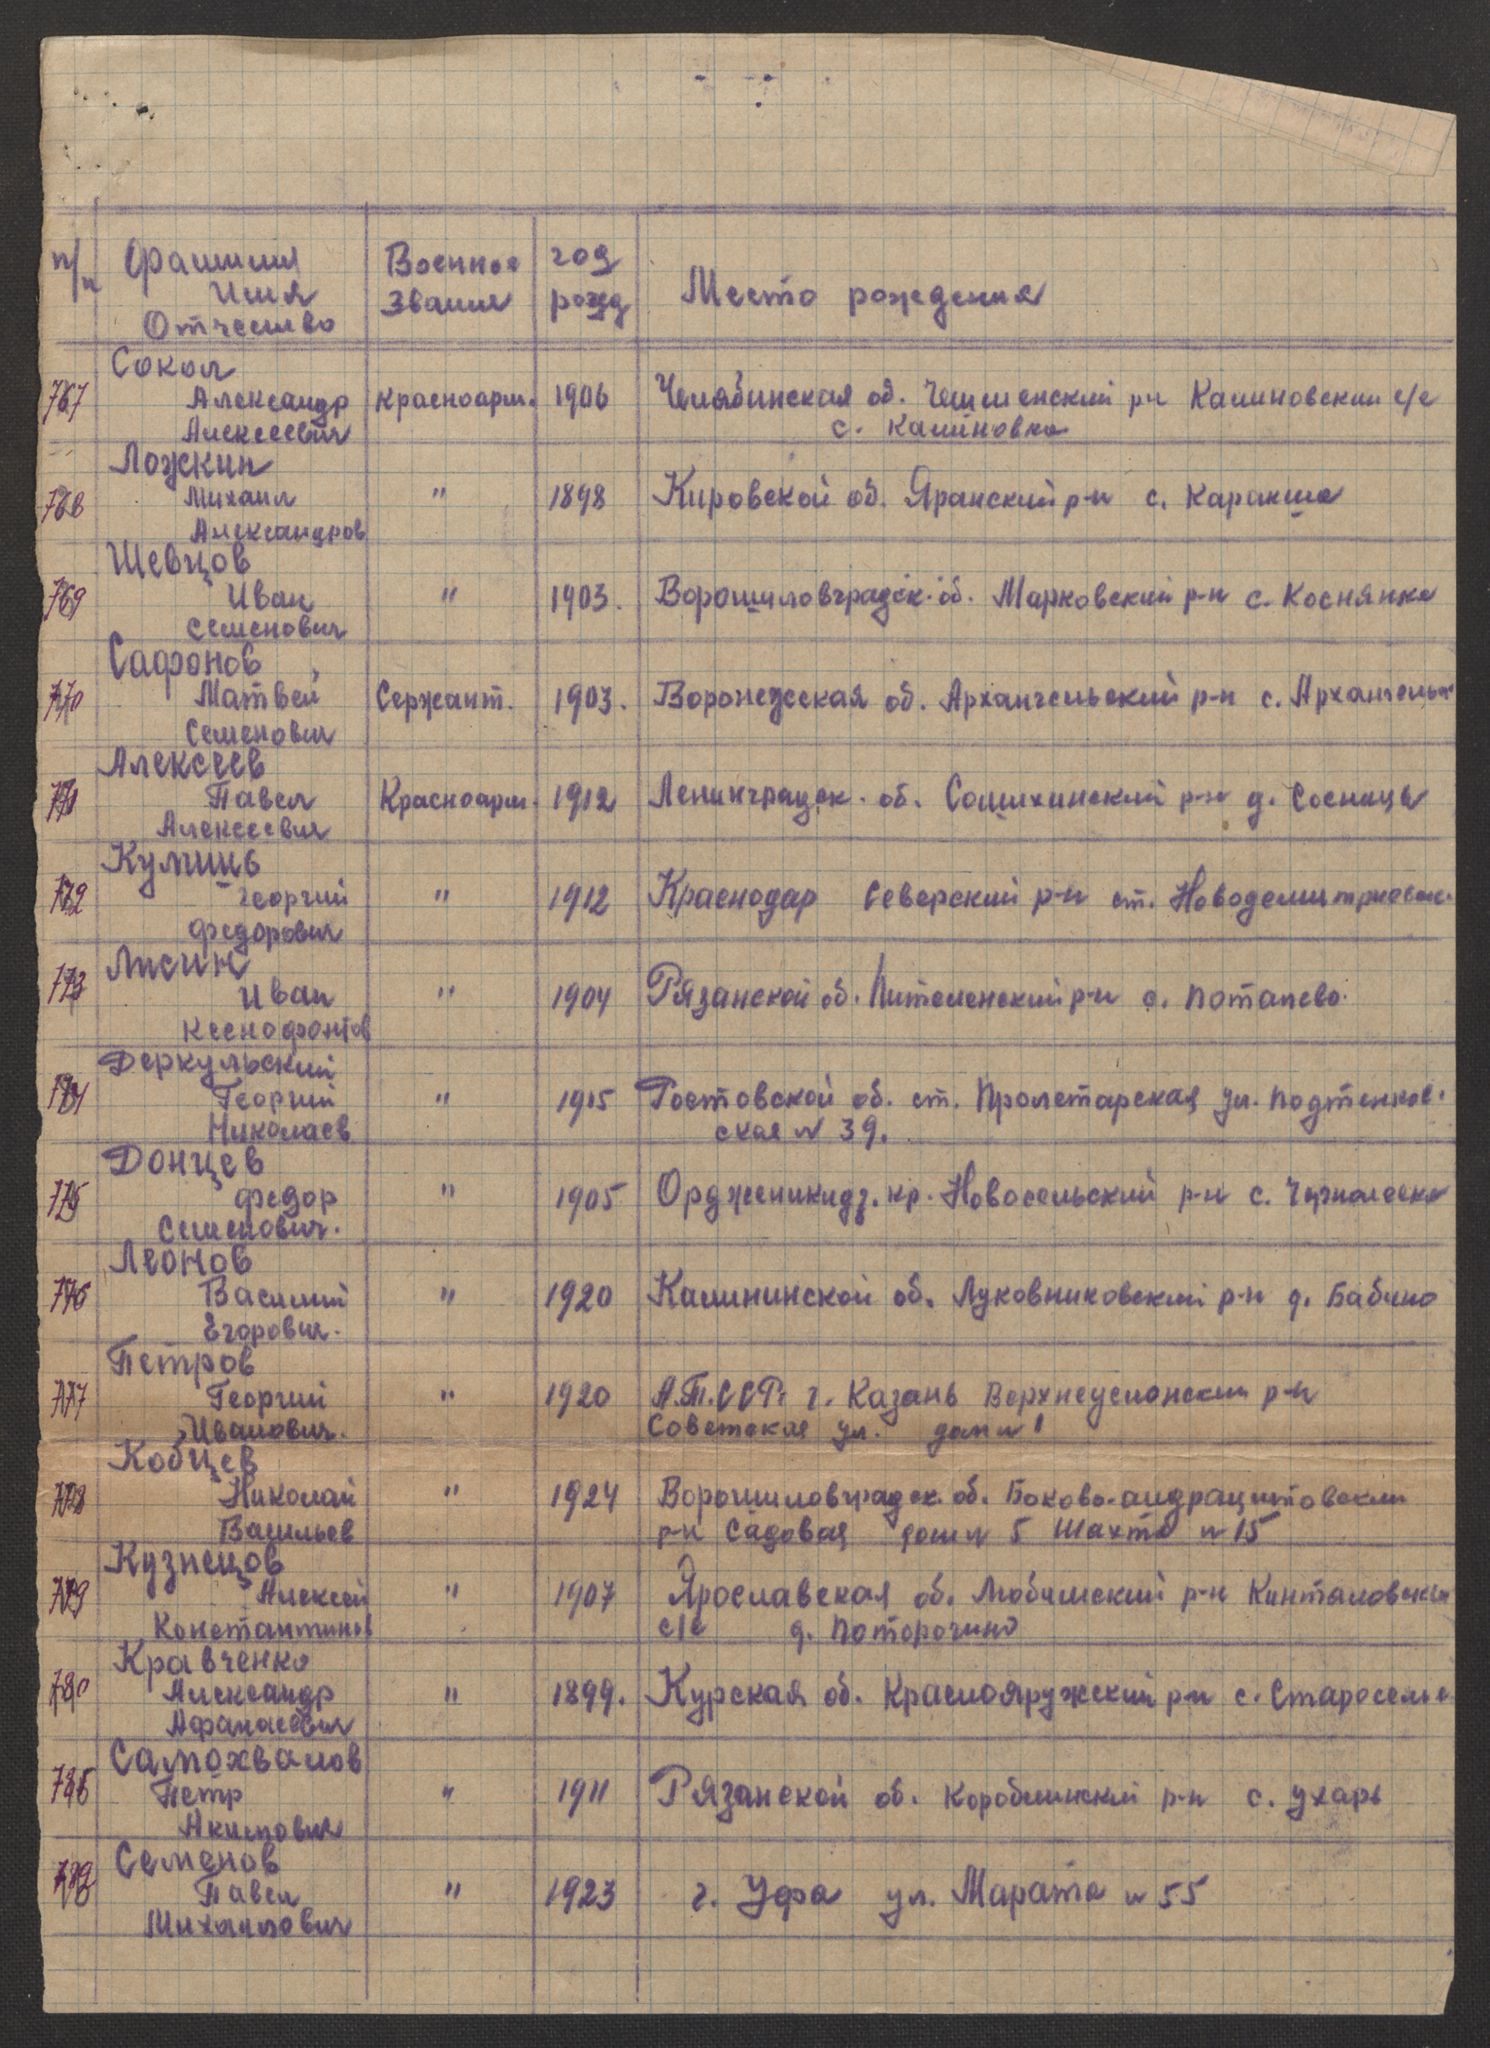 п/п Фамилия Имя Отчество Военное Звание год рожд Место рождения
767 Сокол Александр Алексеевич Красноарм. 1906 Челябинская об. Чешменский р-н Калиновский с/с
с. Калиновка
768 Ложкин Михаил Александров " 1898 Кировской об. Яранский р-н с. Каракша
769 Шевцов Иван Семенович " 1903. Ворошиловградск. об. Марковский р-н с. Коснянка
770 Сафонов Матвей Семенович Сержант. 1903. Воронежская об. Архангельский р-н с. Архангельск
771 Алексеев Павел Алексеевич Красноарм. 1912 Ленинградск. об. Сошихинский р-н д. Сосница
772 Куминь Георгий Федорович " 1912 Краснодар Северский р-н ст. Новодемитриевск.
773 Лисин Иван Ксенофонтов " 1904 Рязанской об. Пителенский р-н с. Потапево.
774 Деркульский Георгий Николаев " 1915 Ростовской об. ст. Пролетарская ул. Подтелков-
ская н 39.
775 Донцев Федор Семенович. " 1905 Ордженикидз. кр. Новосельский р-н с. Чернолеска
776 Леонов Василий Егорович. " 1920 Калининской об. Луковниковский р-н д. Бабино
777 Петров Георгий Иванович. " 1920 А.Т.ССР. г. Казань Верхнеуслонский р-н
Советская ул. дом н 1
778 Кобцев Николай Васильев " 1924 Ворошиловградск. об. Боково-андрацитовский
р-н Садовая дом н 5 Шахта н 15
779 Кузнецов Алексей Константинов " 1907 Ярославская об. Любимский р-н Кинталовский
с/с д. Поторочино
780 Кравченко Александр Афанасевич " 1899. Курская об. Краснояружский р-н с. Староселье
Самохвалов Петр Акимович " 1911 Рязанской об. Кораблинский р-н с. Ухарь
Семенов Павел Михайлович " 1923 г. Уфа ул. Марата н 55